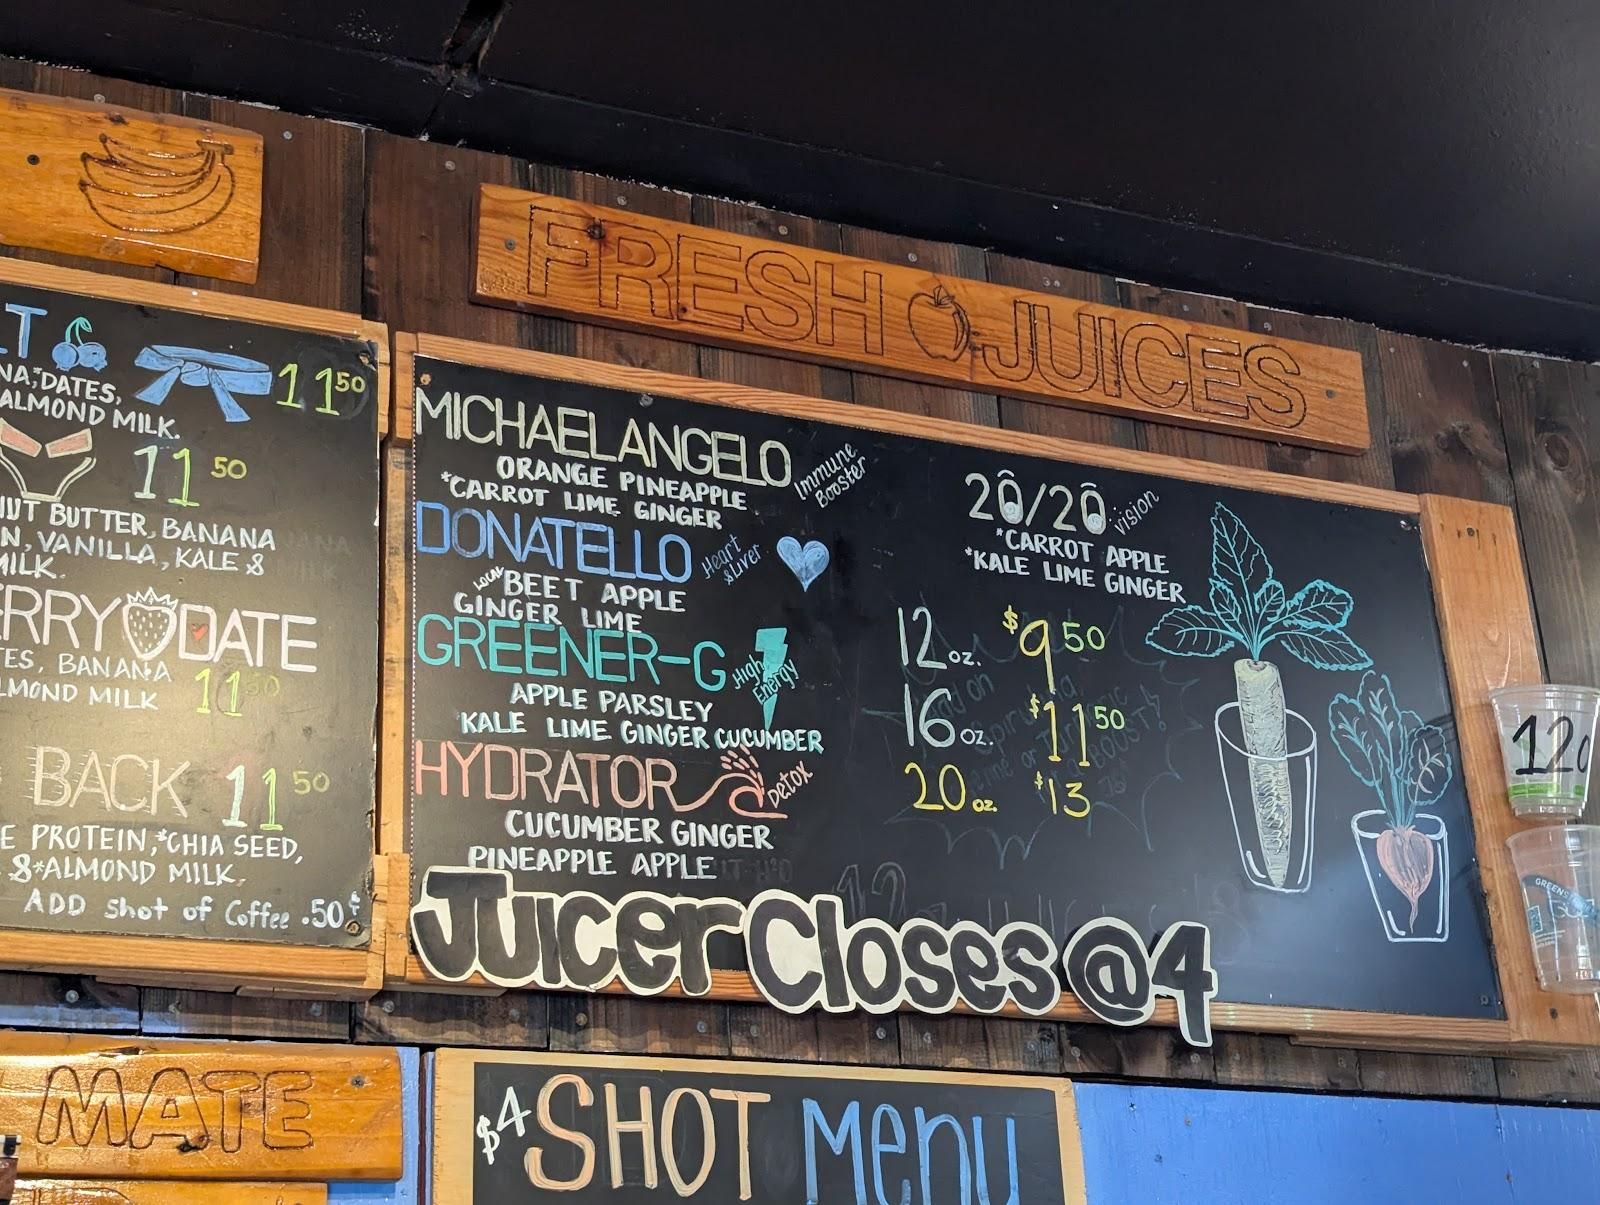 FRESH JUICES
LT
11 50
NA,*DATES,
ALMOND MILK.
11 50
NUT BUTTER, BANANA
N, VANILLA, KALE &
MILK.
ERRY DATE
TES, BANANA
LMOND MILK 11 50
BACK 11 50
E PROTEIN,*CHIA SEED,
&*ALMOND MILK.
ADD Shot of Coffee .50¢
MICHAELANGELO
Immune
Booster
ORANGE PINEAPPLE
*CARROT LIME GINGER
DONATELLO
Heart
& Liver
LOCAL BEET APPLE
GINGER LIME
GREENER-G
High
Energy
APPLE PARSLEY
KALE LIME GINGER CUCUMBER
HYDRATOR
Detox
CUCUMBER GINGER
PINEAPPLE APPLE
20/20 Vision
*CARROT APPLE
*KALE LIME GINGER
12 oz. $9 50
16 oz. $11 50
20 oz. $13
JUICER CLOSES @ 4
120
GREENS
MATE
$4 SHOT Menu